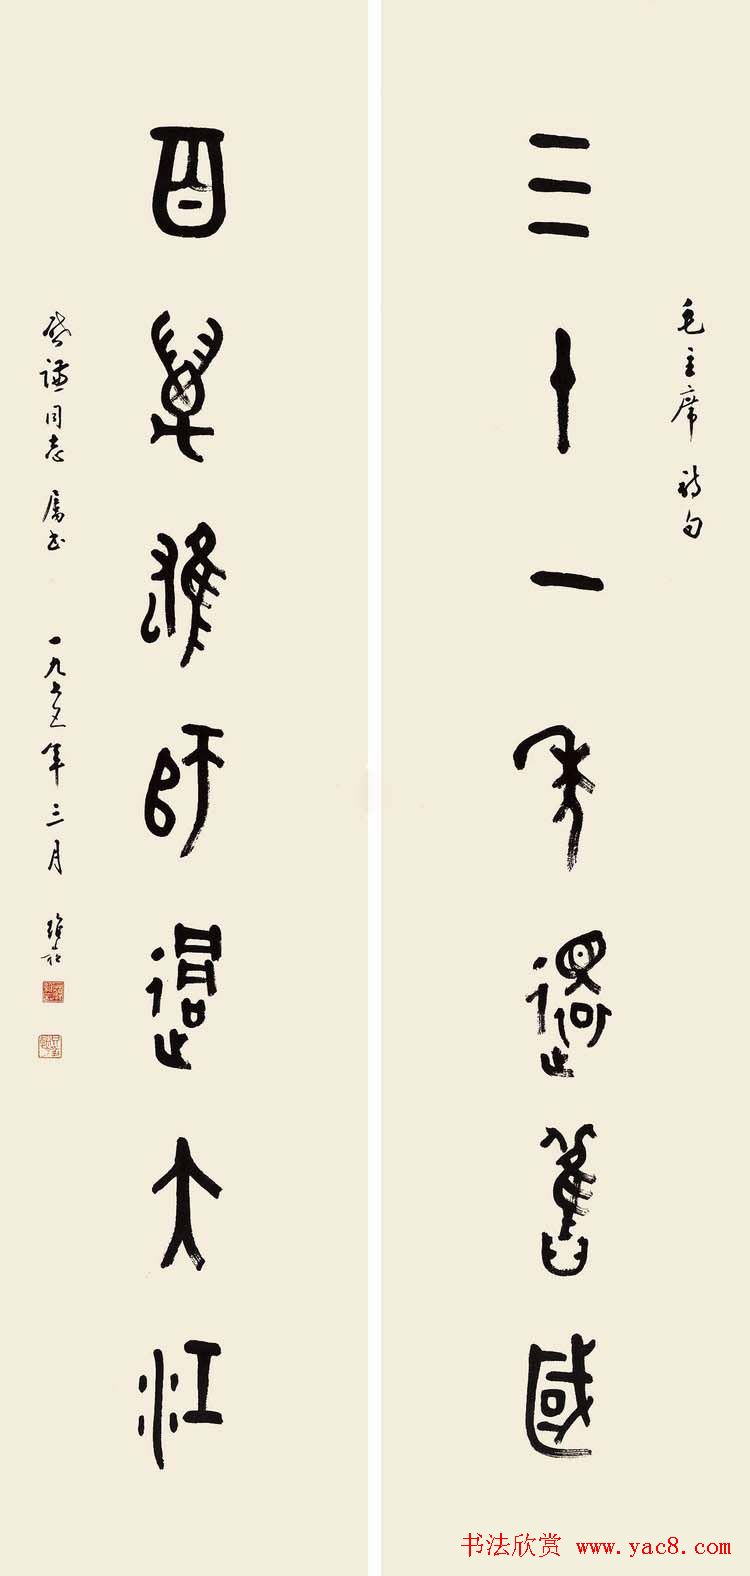 毛主席詩句
三十一年還舊國
百萬雄師過大江
謙同志屬書 一九七五年三月
书法欣赏 www.yac8.com